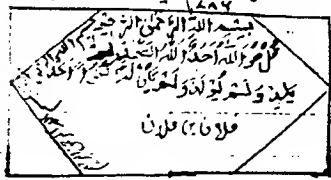 ٧٨٦
بِسْمِ اللهِ الرَّحْمٰنِ الرَّحِيْمِ
قُلْ هُوَ اللهُ اَحَدٌ اَللهُ الصَّمَدُ لَمْ
يَلِدْ وَلَمْ يُوْلَدْ وَلَمْ يَكُنْ لَّهٗ كُفُوًا اَحَدٌ
فلاں بن فلاں